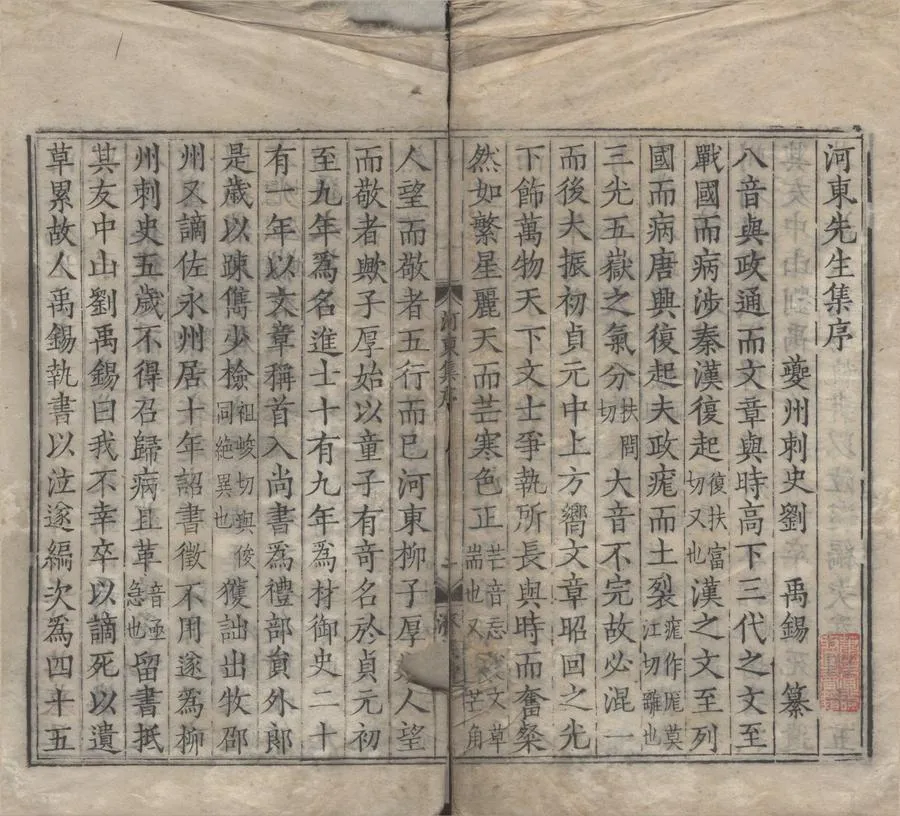 河東先生集序
夔州刺史劉 禹錫 纂
八音與政通而文章與時高下三代之文至
戰國而病涉秦漢復起復扶富切又也漢之文至列
國而病唐興復起夫政痝而土裂痝作厖莫江切離也
三光五嶽之氣分扶問切大音不完故必混一
而後大振初貞元中上方嚮文章昭回之光
下飾萬物天下文士爭執所長與時而奮粲
然如繁星麗天而芒寒色正芒音忘文草耑也又芒角
河東集序
人望而敬者五行而已河東柳子厚人望
而敬者歟子厚始以童子有奇名於貞元初
至九年爲名進士十有九年爲材御史二十
有一年以文章稱首入尚書爲禮部員外郎
是歲以疎雋少檢祖峻切與俊同絶異也獲訕出牧邵
州又謫佐永州居十年詔書徵不用遂爲柳
州刺史五歲不得召歸病且革音亟急也留書抵
其友中山劉禹錫曰我不幸卒以謫死以遺
草累故人禹錫執書以泣遂編次爲四十五